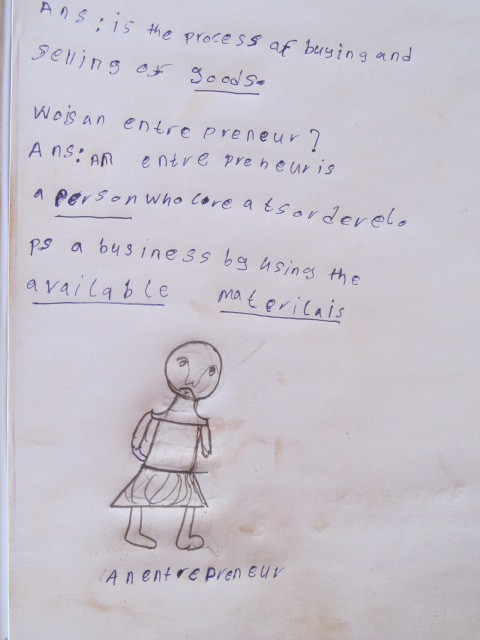 Ans: is the process of buying and
selling of goods.
Wois an entrepreneur?
Ans: An entrepreneur is
a person who coreatsordevelo
ps a business by using the
available materilais
An entrepreneur